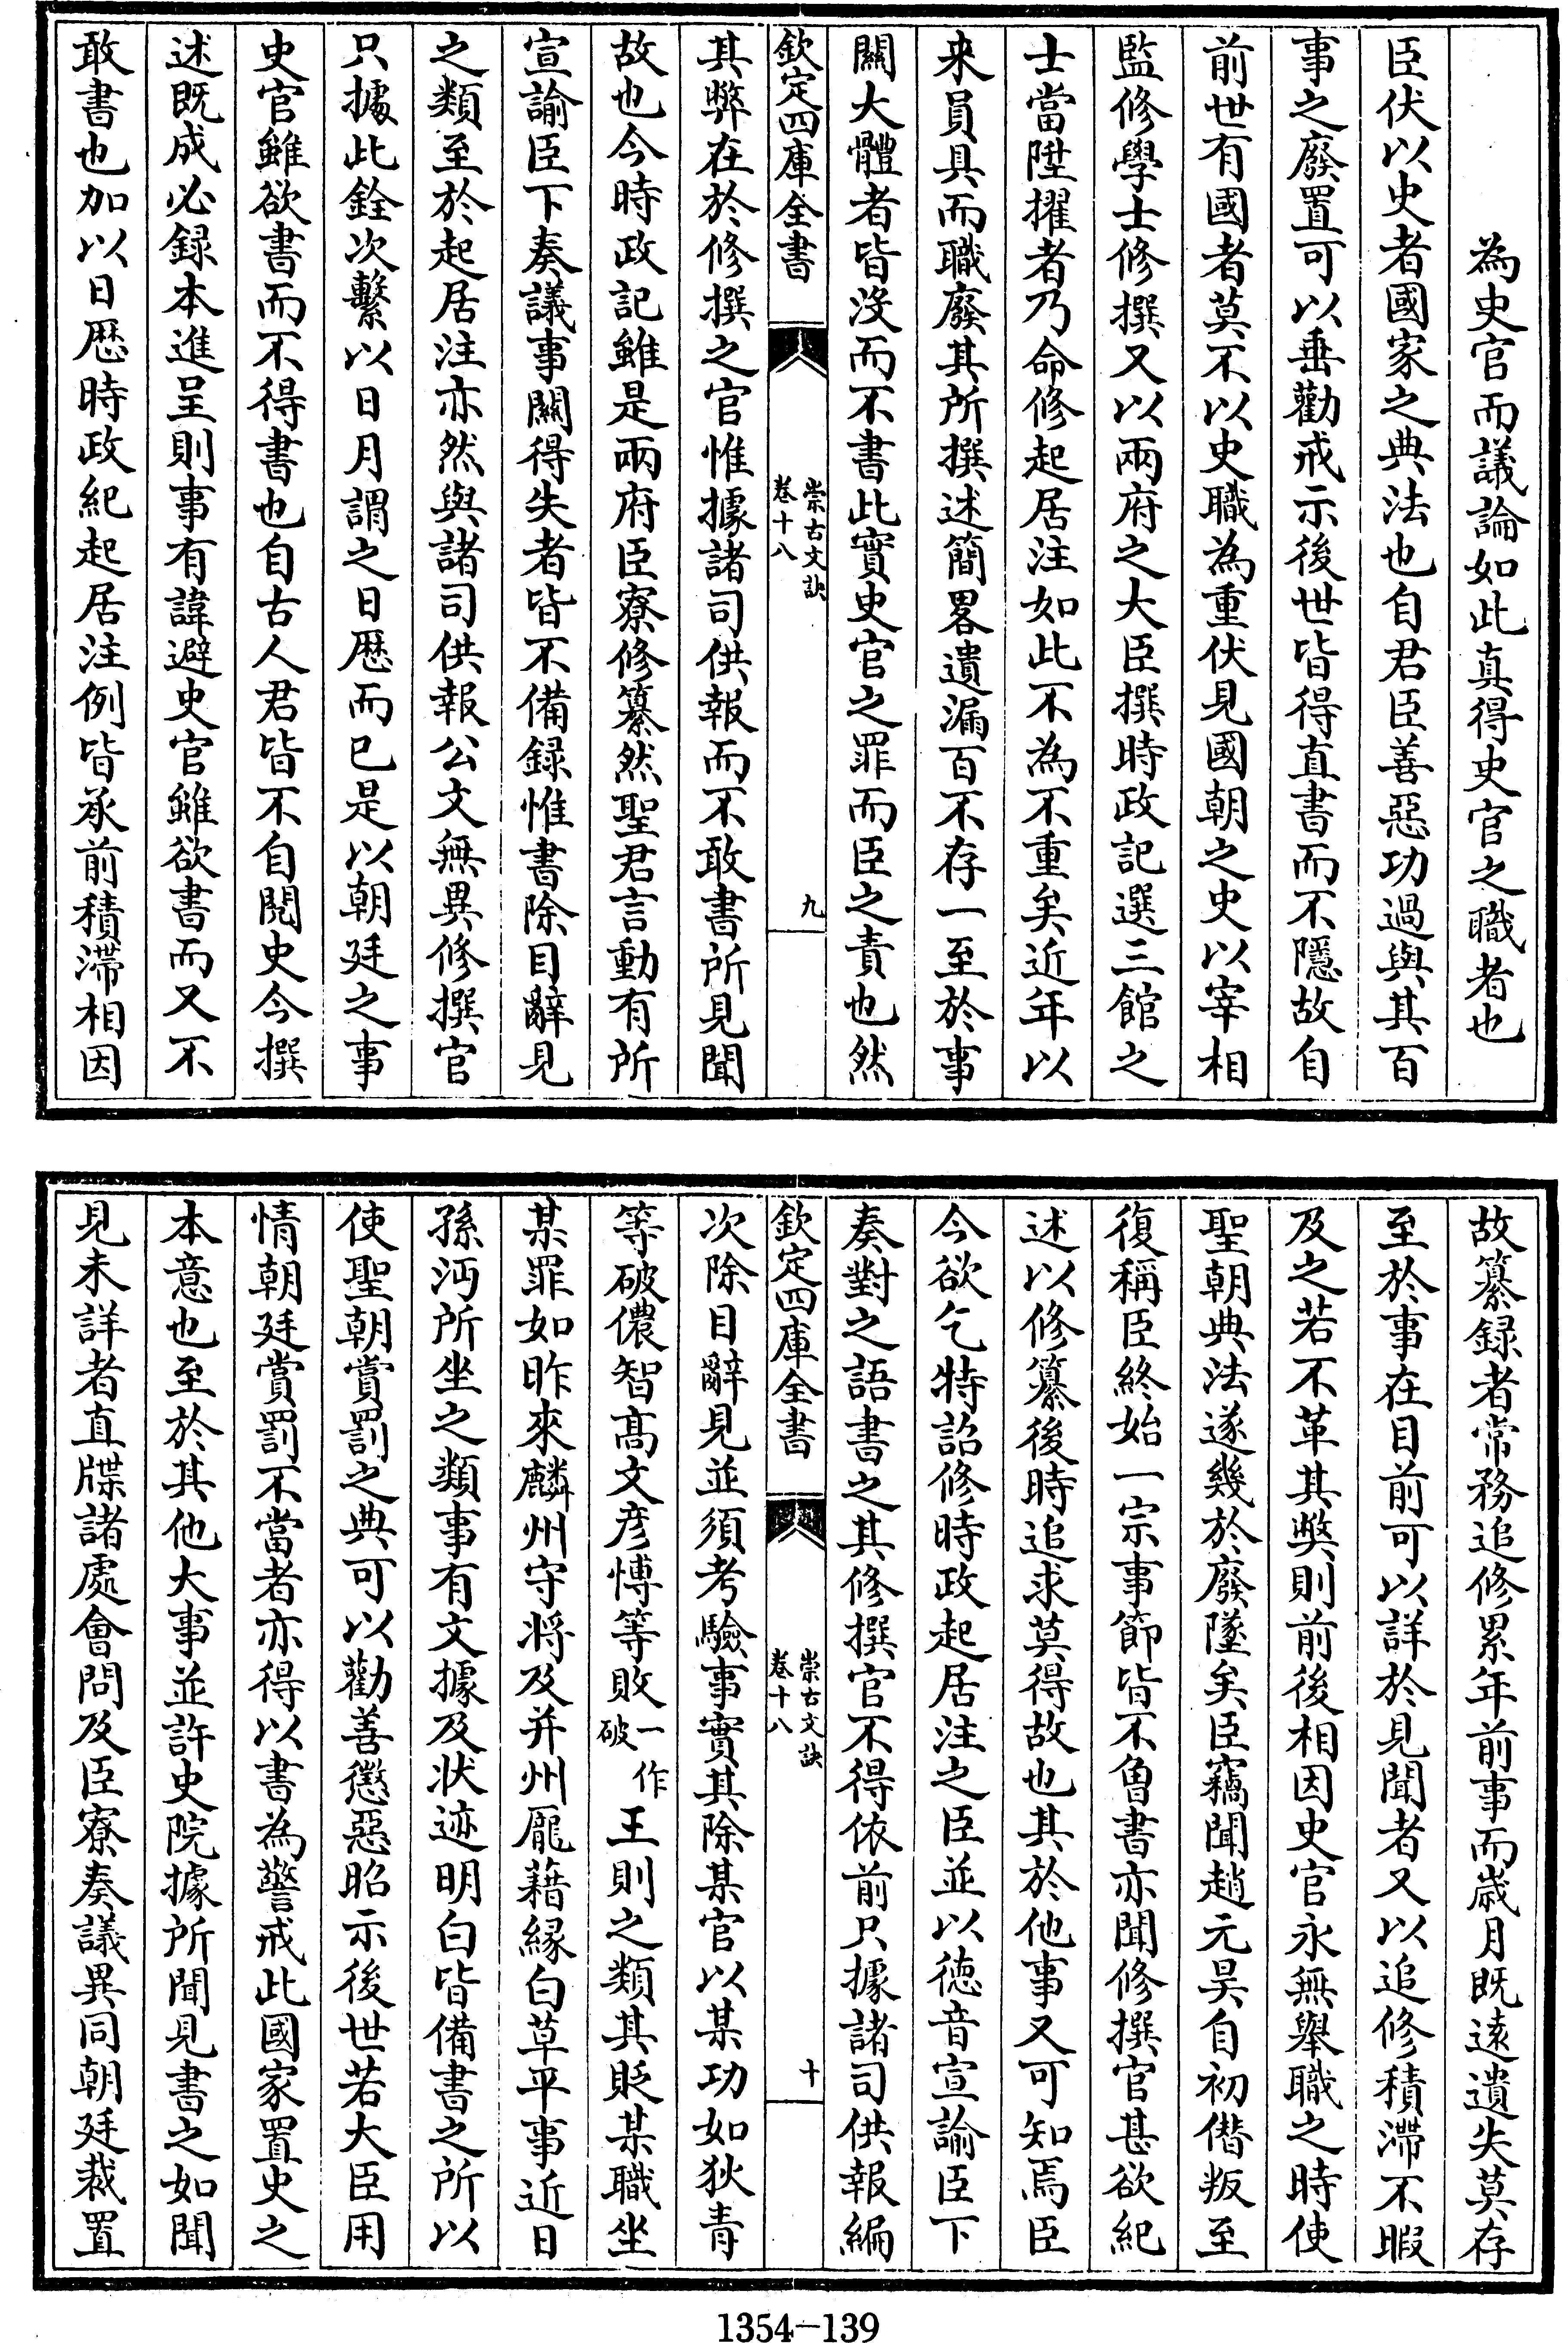 為史官而議論如此真得史官之職者也
臣伏以史者國家之典法也自君臣善惡功過與其百
事之廢置可以垂勸戒示後世皆得直書而不隱故自
前世有國者莫不以史職為重伏見國朝之史以宰相
監修學士修撰又以兩府之大臣撰時政記選三館之
士當陞擢者乃命修起居注如此不為不重矣近年以
来員具而職廢其所撰述簡畧遺漏百不存一至於事
關大體者皆沒而不書此實史官之罪而臣之責也然
欽定四庫全書
崇古文訣
卷十八
九
其弊在於修撰之官惟據諸司供報而不敢書所見聞
故也今時政記雖是兩府臣寮修纂然聖君言動有所
宣諭臣下奏議事關得失者皆不備録惟書除目辭見
之類至於起居注亦然與諸司供報公文無異修撰官
只據此銓次繫以日月謂之日厯而已是以朝廷之事
史官雖欲書而不得書也自古人君皆不自閱史今撰
述既成必録本進呈則事有諱避史官雖欲書而又不
敢書也加以日厯時政紀起居注例皆承前積滯相因
故纂録者常務追修累年前事而歲月既遠遺失莫存
至於事在目前可以詳於見聞者又以追修積滯不暇
及之若不革其弊則前後相因史官永無舉職之時使
聖朝典法遂幾於廢墜矣臣竊聞趙元昊自初僭叛至
復稱臣終始一宗事節皆不魯書亦聞修撰官甚欲紀
述以修纂後時追求莫得故也其於他事又可知焉臣
今欲乞特詔修時政起居注之臣並以徳音宣諭臣下
奏對之語書之其修撰官不得依前只據諸司供報編
欽定四庫全書
崇古文訣
卷十八
十
次除目辭見並須考驗事實其除某官以某功如狄青
等破儂智高文彦愽等敗一作破王則之類其貶某職坐
某罪如昨來麟州守將及并州龎藉縁白草平事近日
孫沔所坐之類事有文據及状迹明白皆備書之所以
使聖朝賞罰之典可以勸善懲惡昭示後世若大臣用
情朝廷賞罰不當者亦得以書為警戒此國家置史之
本意也至於其他大事並許史院據所聞見書之如聞
見未詳者直牒諸處會問及臣寮奏議異同朝廷裁置
1354—139